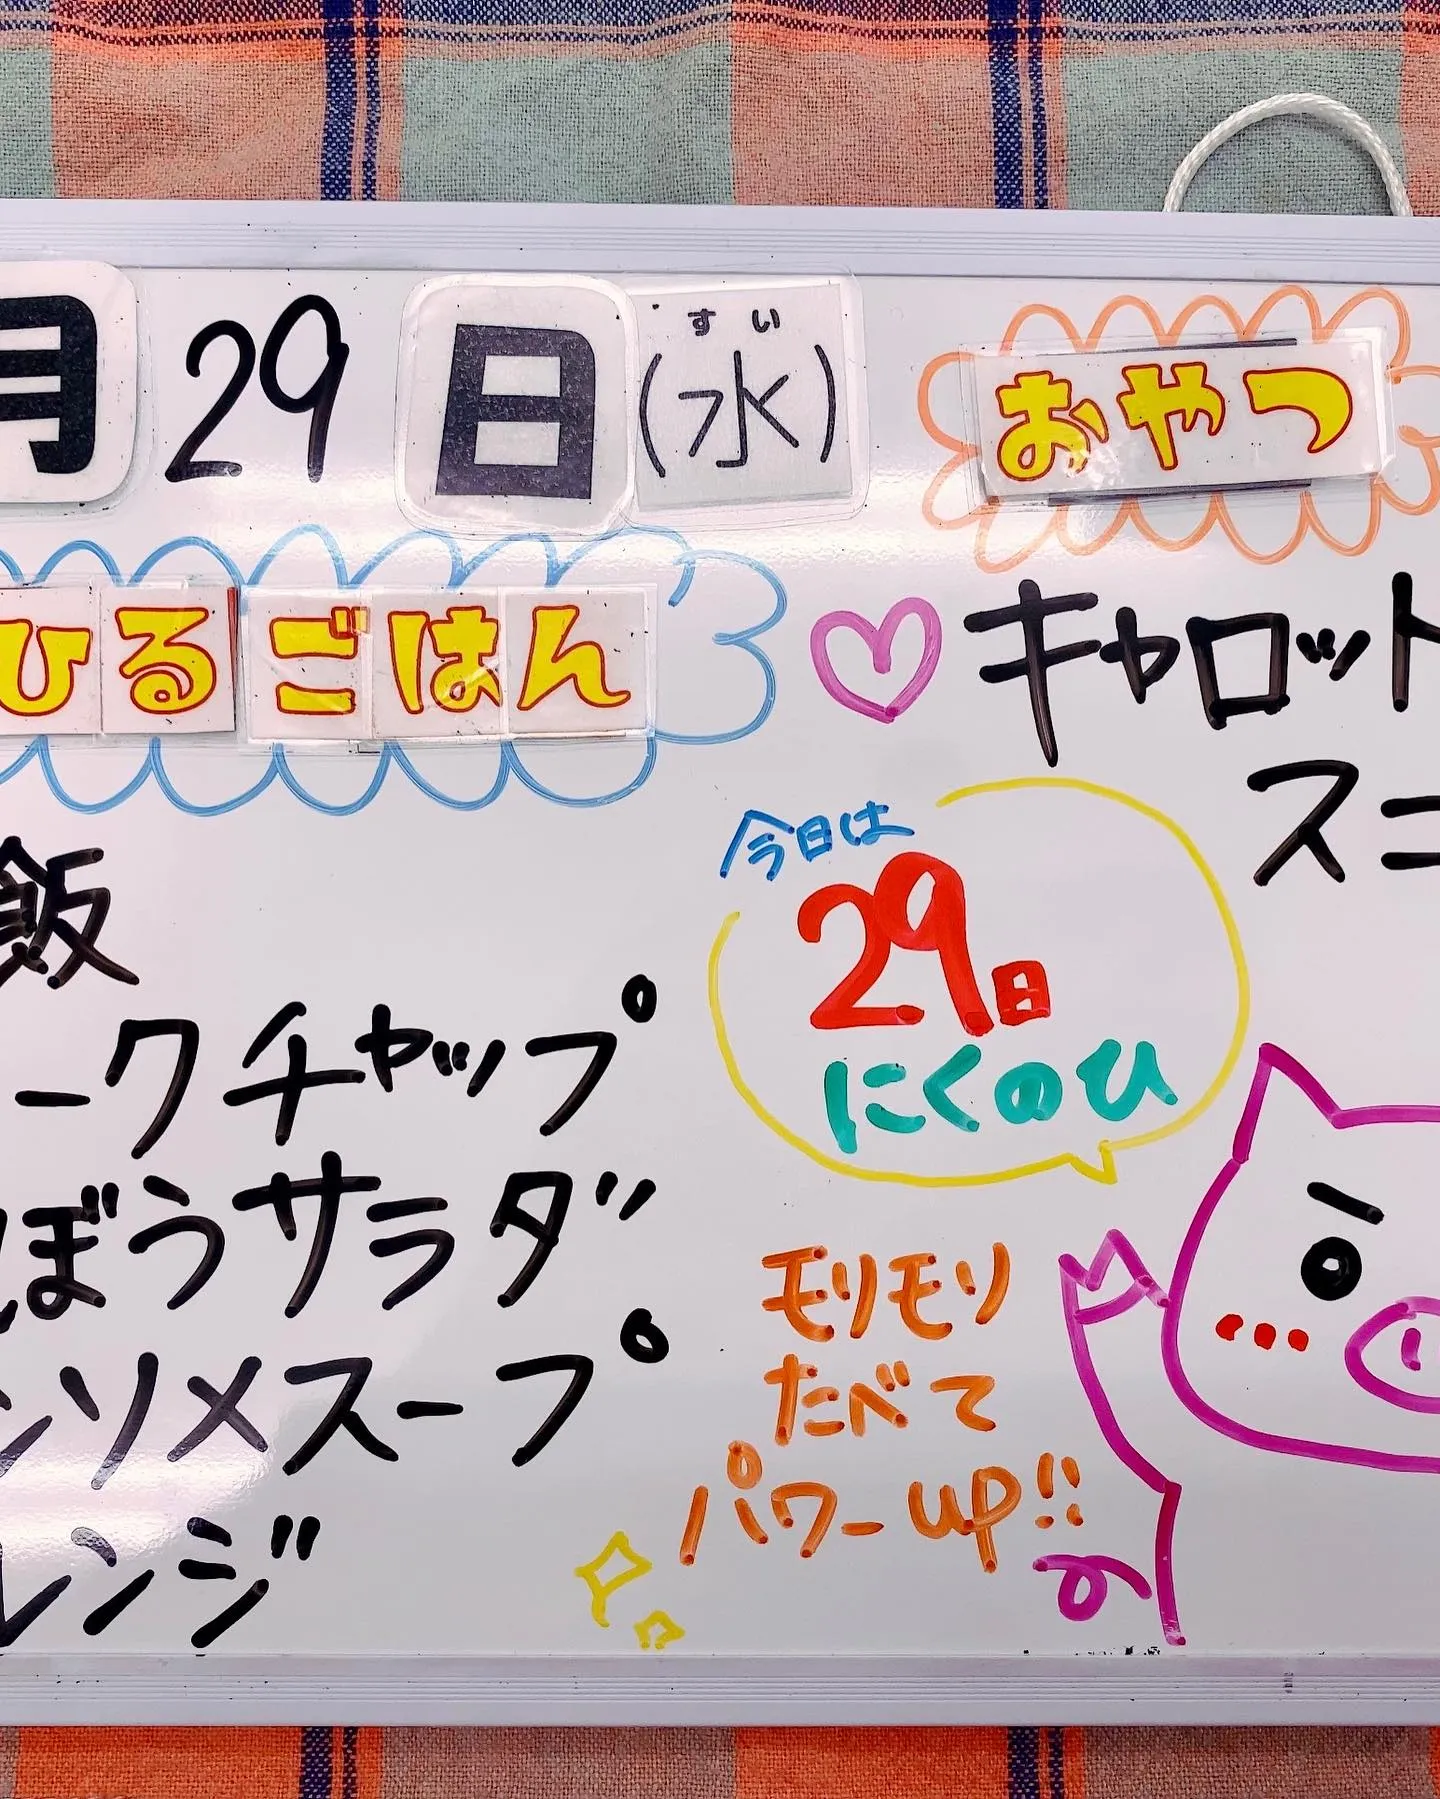 月 29 日 (水)
すい
おやつ
ひるごはん
♡ キャロット
スニ
飯
ークチャップ
ぼうサラダ
ンソメスープ
レンジ
今日は
29日
にくのひ
モリモリ
たべて
パワーup!!